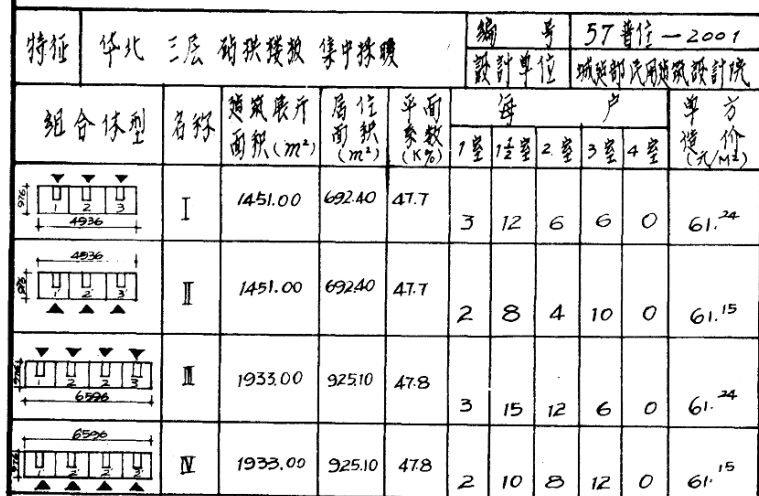 特征 华北 三层 砖拱楼板 集中採暖
编 号 57普住—2001
設計单位 城建部民用建筑設計院
组合体型 名称 建筑展开面积(m²) 居住面积(m²) 平面系数(K%) 每 户 单方造价(元/M²)
1室 1½室 2室 3室 4室
976 1 2 3 4936 I 1451.00 692.40 47.7 3 12 6 6 0 61.24
4936 1' 2' 3' II 1451.00 692.40 47.7 2 8 4 10 0 61.15
976 1 2 2 3 6596 III 1933.00 925.10 47.8 3 15 12 6 0 61.24
6596 976 1' 2' 2' 3' IV 1933.00 925.10 47.8 2 10 8 12 0 61.15